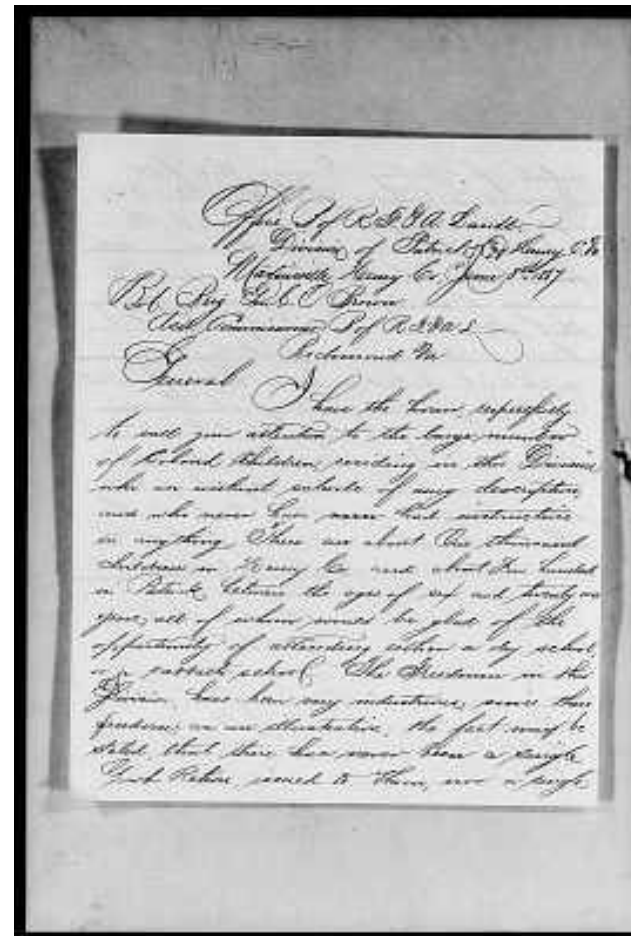 Office B of R F & A Lands
Division of Patrick & Henry C. Va
Martinsville Henry Co. June 8th 1867
Bvt Brig Gen O Brown
Asst Commissioner B of R F & A L
Richmond Va
General I have the honor respectfully
to call your attention to the large number
of Colored Children residing in this Division
who are without schools of any description
and who never have had instruction
in anything There are about One thousand
children in Henry Co and about hundred
in Patrick between the ages of six and twenty one
years, all of whom would be glad of the
opportunity of attending either a day school,
or a Sabbath school. The Freedmen in this
Division have been very industrious, since their
freedom; as an illustration, the fact may be
stated that there has never been a single
Ration issued to them, nor a single